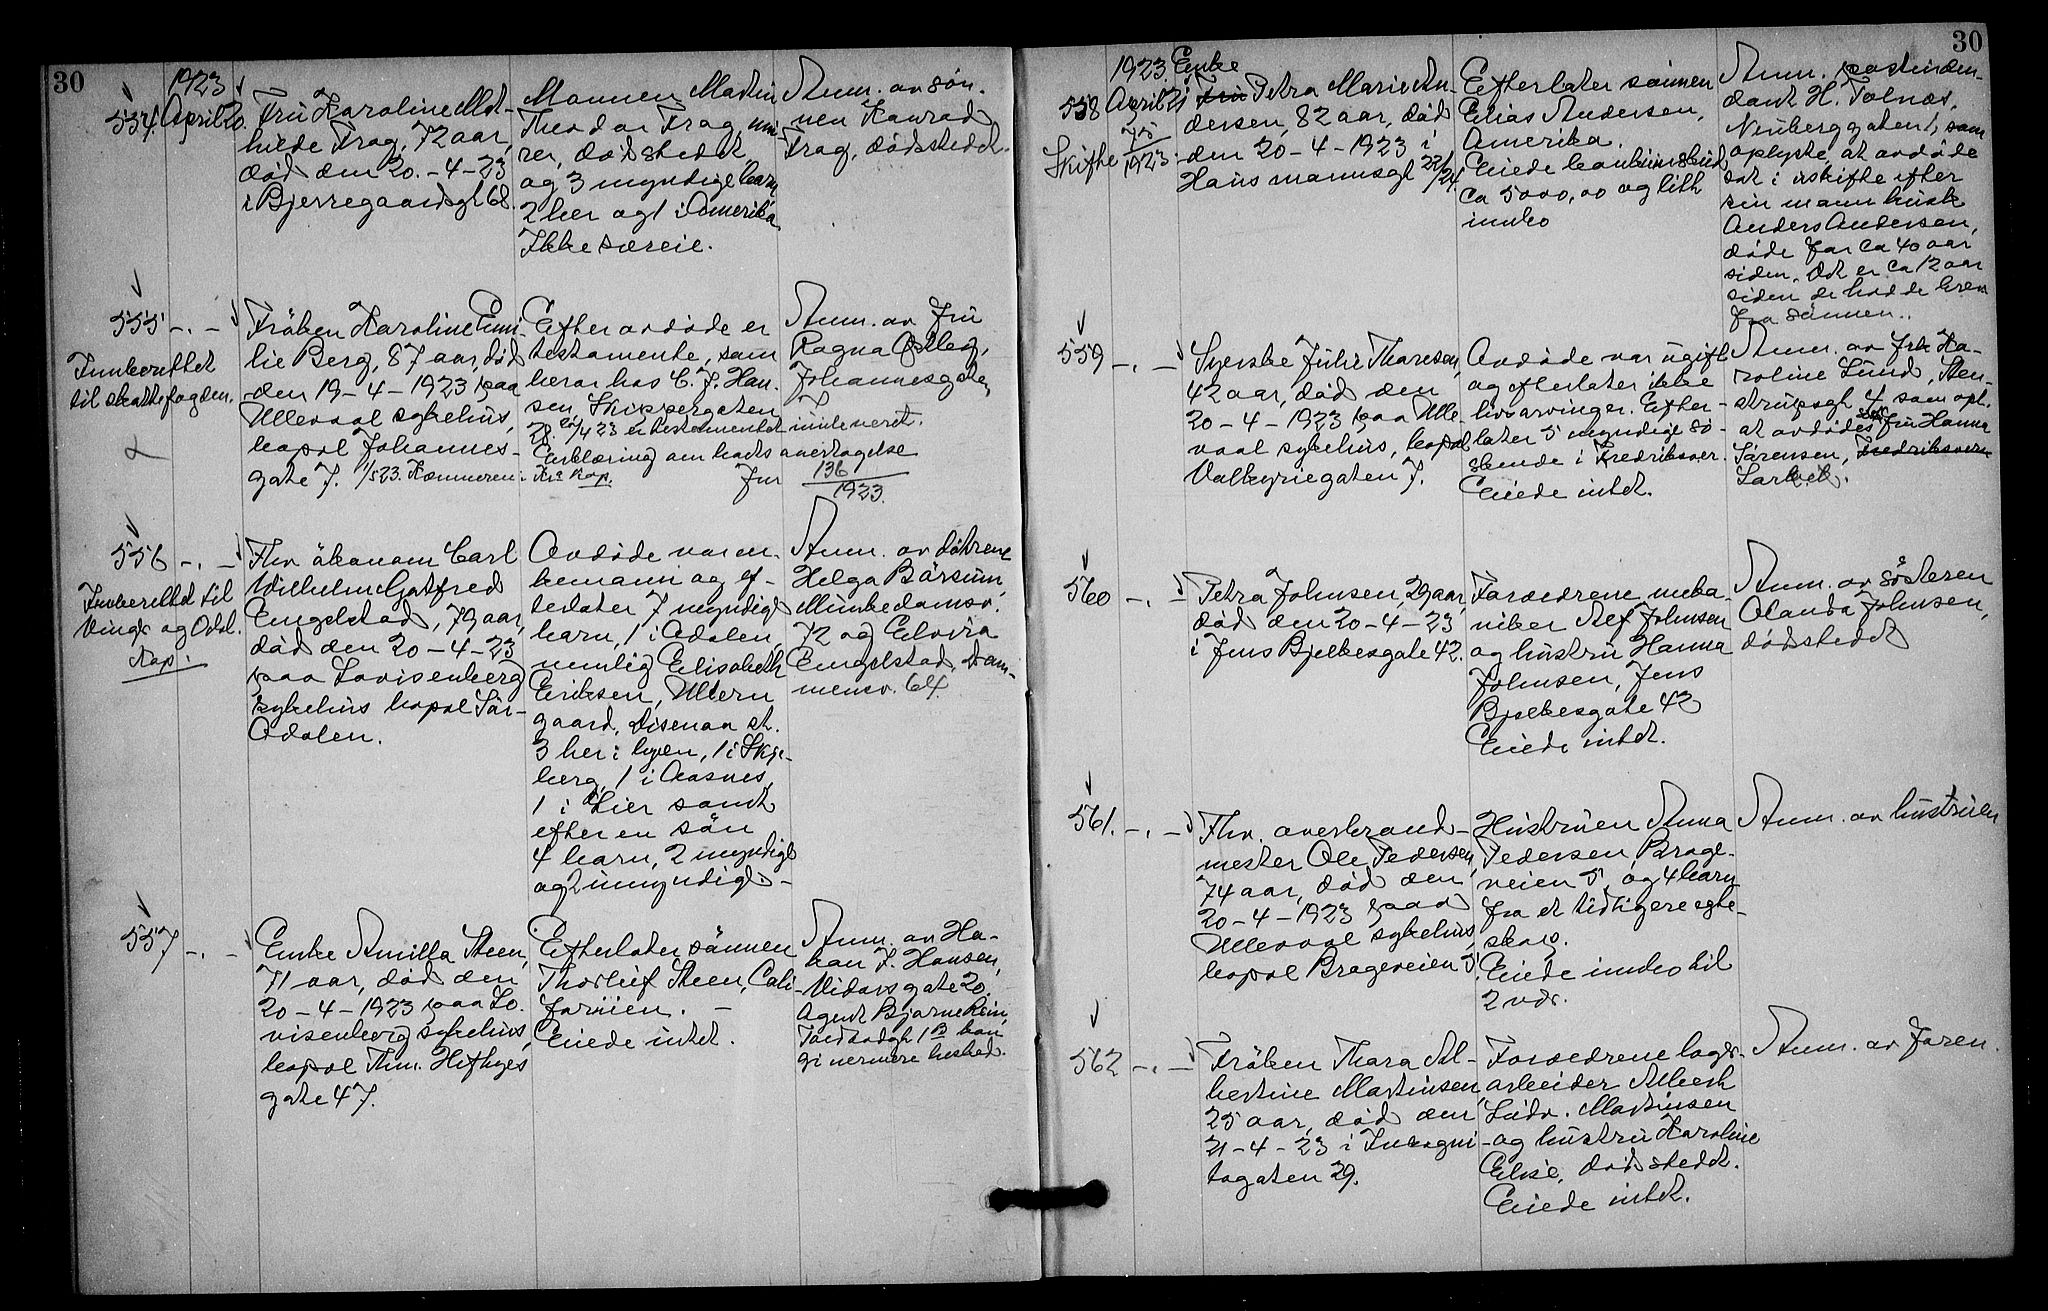 30
1923
554.
April 20.
Fru Karoline Mat-
hilde Frog, 72 aar,
død den 20.-4-23
i Bjerregaardsgt 68.
Mannen Martin
Theodor Frog, mu-
rer, dødsstedet
og 3 myndige barn,
2 her og 1 i Amerika,
Ikke særeie.
Anm. av søn-
nen Konrad
Frog, dødsstedet.
555 -.-
Innberettet
til skattefogden.
Frøken Karoline Emi-
lie Berg, 87 aar, død
den 19-4-1923 paa
Ullevaal sykehus,
bopæl Johannes-
gate 7. 1/5 23. Kæmneren.
Efter avdøde er
testamente, som
beror hos C. J. Han-
sen, Skippergaten
28. /4 23 er testamentet innleveret.
Erklæring om boets overtagelse
Kra Kap. Jnr 136
1923.
Anm. av fru
Ragna
Johannesgaten
7
556 -.-
Innberettet til
Vinger og Odal.
dep.
Fhv økonom Carl
Wilhelm Gotfred
Engelstad, 79 aar,
død den 20-4-23
paa Lovisenberg
sykehus bopæl Sør-
Odalen.
Avdøde var en-
kemann og ef-
terlater 7 myndige
barn, 1 i Odalen,
nemlig Elisabeth
Eriksen, Ullern
gaard, Disenaa st.
3 her i byen, 1 i Skje-
berg, 1 i Aasnes,
1 i Lier samt
efter en søn
4 barn, 2 myndige
og 2 umyndige. -
Anm. av døtrene
Helga Børsum,
Munkedamsv.
72 og Elvira
Engelstad, Dram-
mensv. 64.
557 -.-
Enke Amilla Steen,
71 aar, død den
20-4-1923 paa Lo-
visenberg sykehus,
bopæl Thv. Heftyes
gate 47.
Efterlater sønnen
Thorleif Steen, Cali-
fornien. -
Eiede intet.
Anm. av Ha-
kon J. Hansen,
Vidarsgate 20.
Agent Bjarne Rein,
1 B kan
gi nermere besked.
30
1923.
558
April 21
Skifte 75
1923.
Enke
Fru Petra Marie An-
dersen, 82 aar, død
den 20-4-1923 i
Hausmannsgt 22/24.
Efterlater sønnen
Elias Andersen,
Amerika.
Eiede bankinnskud
ca 5000,00 og litt
innbo
Anm. postinten-
dant H. Tolnæs,
Neuberggaten 1, som
oplyste, at avdøde
sat i uskifte efter
sin mann kusk
Anders Andersen,
døde for ca 40 aar
siden. Det er ca 12 aar
siden de hadde brev
fra sønnen..
559 -.-
Syerske Julie Thoresen,
42 aar, død den
20-4-1923 paa Ulle-
vaal sykehus, bopæl
Valkyriegaten 7.
Avdøde var ugift
og efterlater ikke
livsarvinger. Efter-
later 5 myndige sø-
skende i Fredriksver.
Eiede intet.
Anm. av frk Ka-
roline Lund, Sten-
strupsgt. 4 som opl.
at avdødes fru Hanna
Sørensen, Fredriksvern
Larvik.
560 -.-
Petra Johnsen, 29 aar,
død den 20-4-23
i Jens Bjelkesgate 42.
Forældrene, meka-
niker Alf Johnsen
og hustru Hanna
Johnsen, Jens
Bjelkesgate 42
Eiede intet.
Anm. av søsteren
Olanda Johnsen,
dødsstedet
561. -.-
Fhv. overbrand-
mester Ole Pedersen,
74 aar, død den
20-4-1923 paa
Ullevaal sykehus,
bopæl Brageveien 5.
Hustruen Anna
Pedersen, Brage-
veien 5, og 4 barn
fra et tidligere egte-
skap.
Eiede innbo til
2 vær.
Anm. av hustruen
562 -.-
Frøken Thora Al-
bertine Martinsen,
25 aar, død den
21-4-23 i Incogni-
togaten 29.
Forældrene lager-
arbeider Albert
Ludv. Martinsen
og hustru Karoline
Elise, dødsstedet.
Eiede intet.
Anm. av faren.